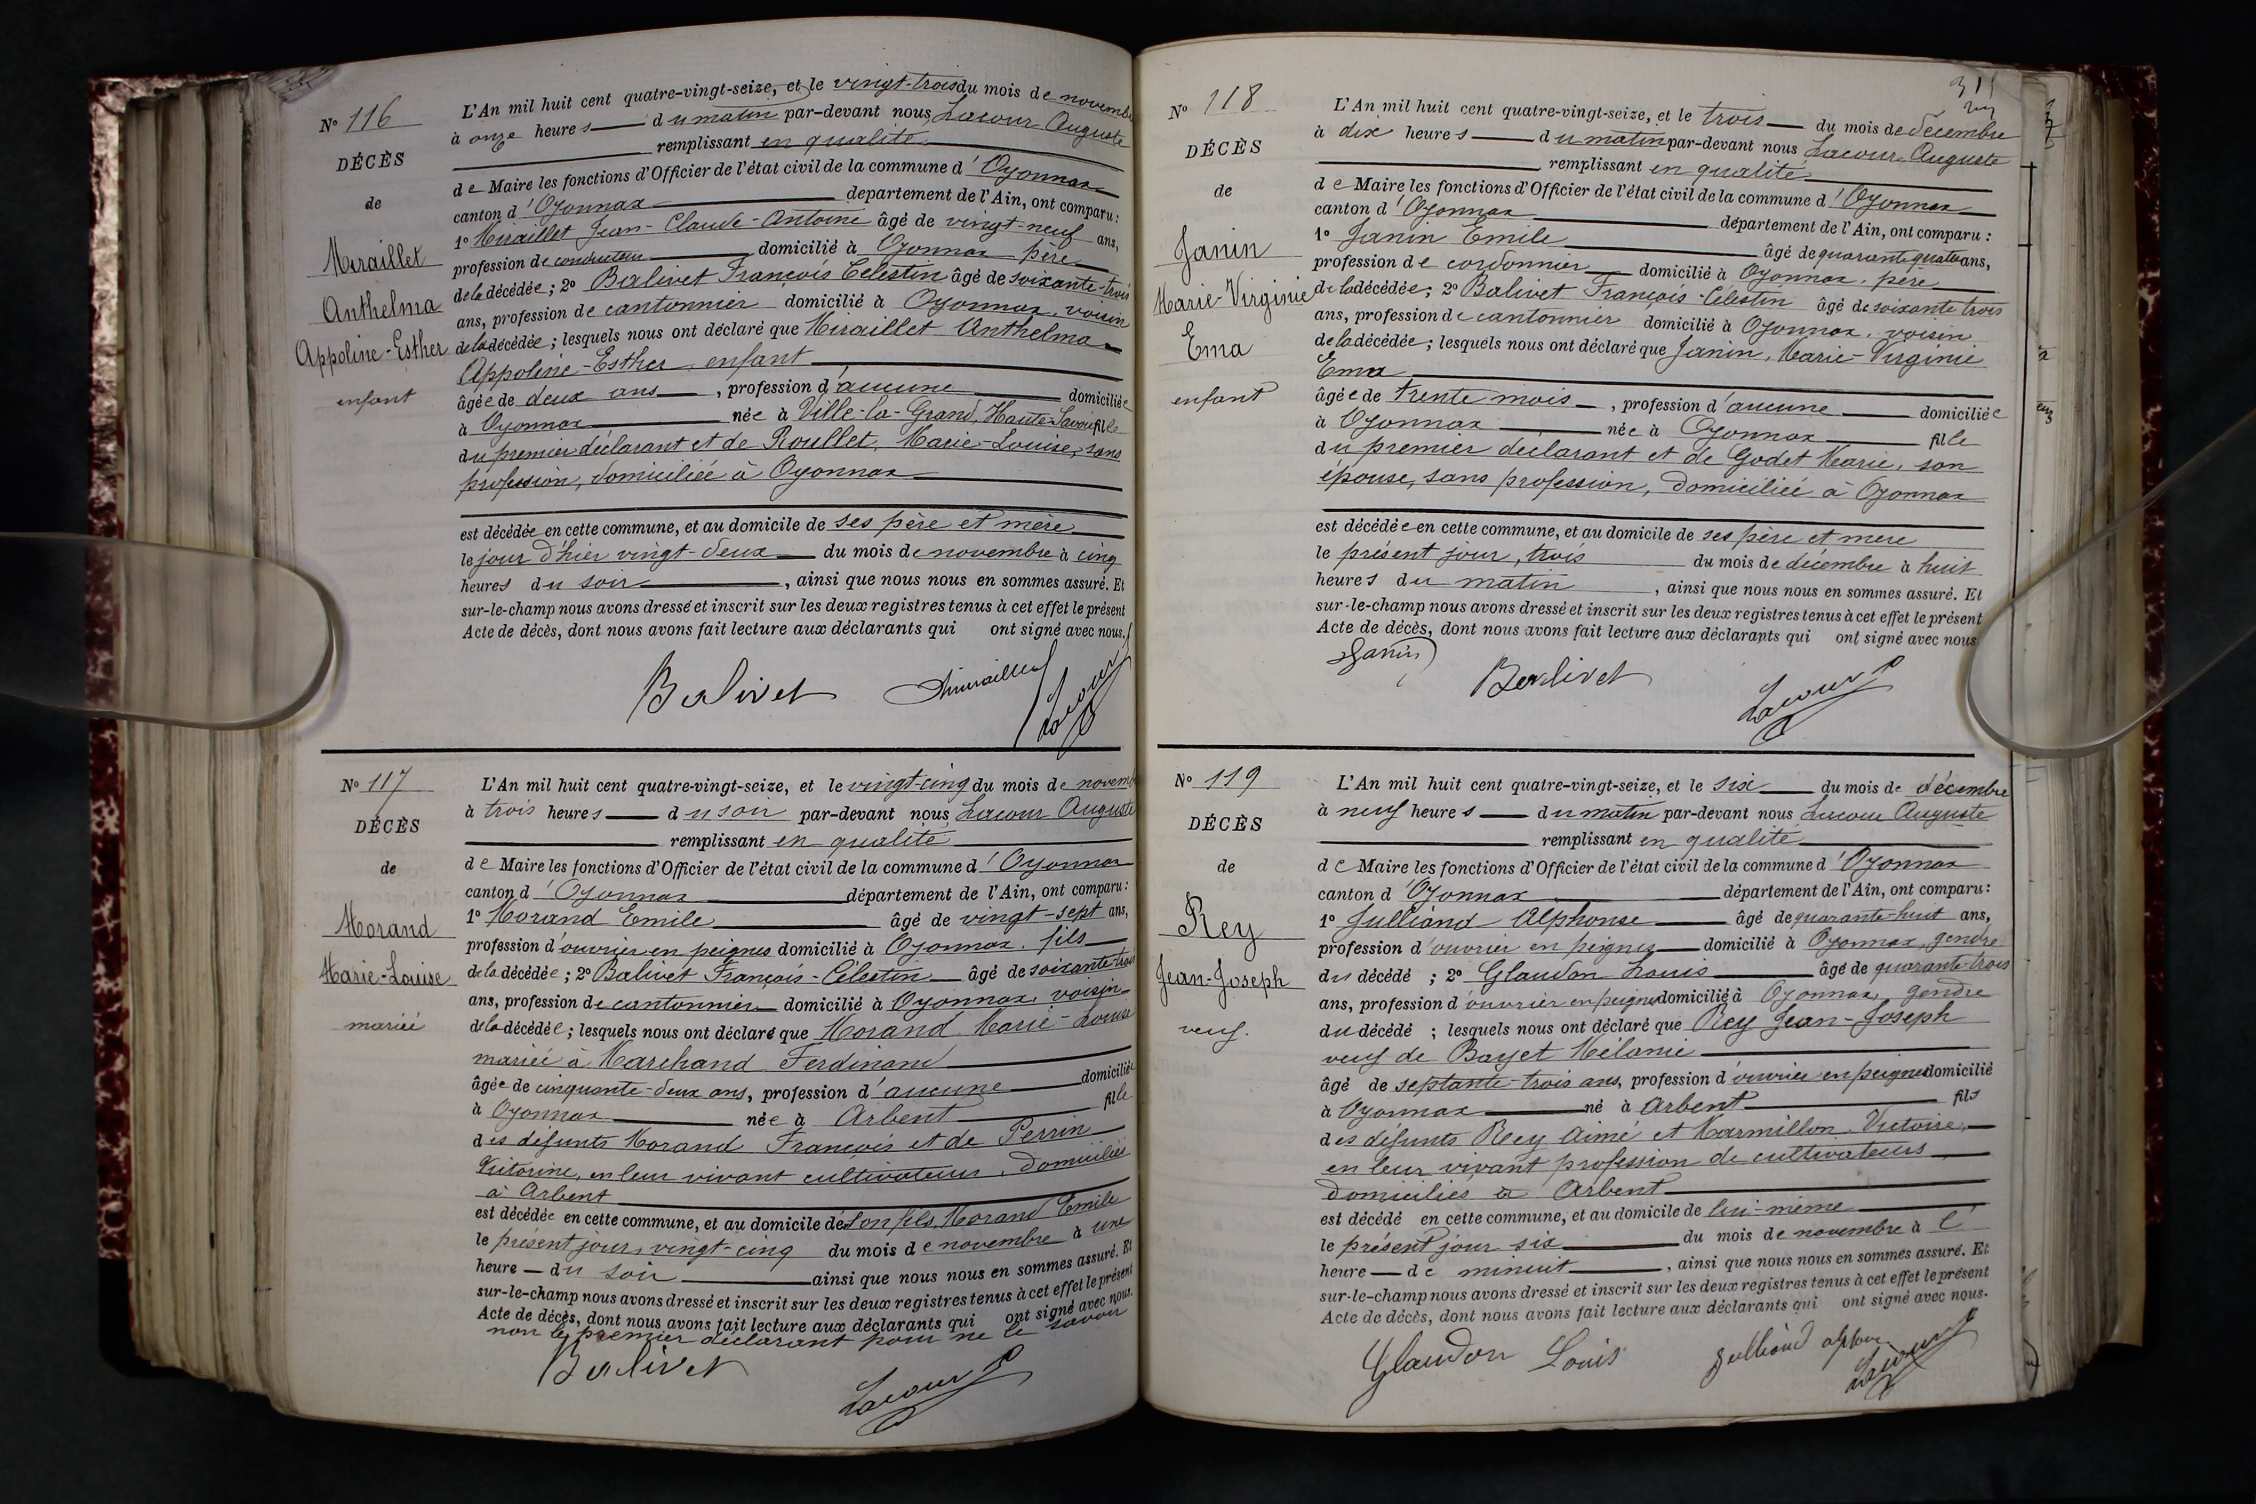 Nº 116
DÉCÈS
de
Miraillet
Anthelma
Appoline-Esther
enfant
L'An mil huit cent quatre-vingt-seize, et le vingt-trois du mois de novembre
à onze heures du matin par-devant nous Lacour Auguste
remplissant en qualité
de Maire les fonctions d'Officier de l'état civil de la commune d'Oyonnax
canton d'Oyonnax département de l'Ain, ont comparu :
1º Miraillet Jean-Claude-Antoine âgé de vingt-neuf ans,
profession de conducteur domicilié à Oyonnax père
de la décédée ; 2º Balivet François Célestin âgé de soixante-trois
ans, profession de cantonnier domicilié à Oyonnax, voisin
de la décédée ; lesquels nous ont déclaré que Miraillet Anthelma
Appoline-Esther, enfant
âgée de deux ans, profession d'aucune domiciliée
à Oyonnax née à Ville-la-Grand, Haute-Savoie fille
du premier déclarant et de Roullet, Marie-Louise, sans
profession, domiciliée à Oyonnax
est décédée en cette commune, et au domicile de ses père et mère
le jour d'hier vingt-deux du mois de novembre à cinq
heures du soir, ainsi que nous nous en sommes assuré. Et
sur-le-champ nous avons dressé et inscrit sur les deux registres tenus à cet effet le présent
Acte de décès, dont nous avons fait lecture aux déclarants qui ont signé avec nous.
Balivet Miraillet Lacour
Nº 117
DÉCÈS
de
Morand
Marie-Louise
mariée
L'An mil huit cent quatre-vingt-seize, et le vingt-cinq du mois de novembre
à trois heures du soir par-devant nous Lacour Auguste
remplissant en qualité
de Maire les fonctions d'Officier de l'état civil de la commune d'Oyonnax
canton d'Oyonnax département de l'Ain, ont comparu :
1º Morand Emile âgé de vingt-sept ans,
profession d'ouvrier en peignes domicilié à Oyonnax, fils
de la décédée ; 2º Balivet François-Célestin âgé de soixante-trois
ans, profession de cantonnier domicilié à Oyonnax, voisin
de la décédée ; lesquels nous ont déclaré que Morand Marie-Louise
mariée à Marchand Ferdinand
âgée de cinquante-deux ans, profession d'aucune domiciliée
à Oyonnax née à Arbent fille
des défunts Morand François et de Perrin
Victorine, en leur vivant cultivateurs, domiciliés
à Arbent
est décédée en cette commune, et au domicile de son fils, Morand Emile
le présent jour, vingt-cinq du mois de novembre à une
heure du soir ainsi que nous nous en sommes assuré. Et
sur-le-champ nous avons dressé et inscrit sur les deux registres tenus à cet effet le présent
Acte de décès, dont nous avons fait lecture aux déclarants qui ont signé avec nous.
non le premier déclarant pour ne le savoir
Balivet Lacour
311
Nº 118
DÉCÈS
de
Janin
Marie-Virginie
Ema
enfant
L'An mil huit cent quatre-vingt-seize, et le trois du mois de décembre
à dix heures du matin par-devant nous Lacour Auguste
remplissant en qualité
de Maire les fonctions d'Officier de l'état civil de la commune d'Oyonnax
canton d'Oyonnax département de l'Ain, ont comparu :
1º Janin Emile âgé de quarante-quatre ans,
profession de cordonnier domicilié à Oyonnax, père
de la décédée ; 2º Balivet François-Célestin âgé de soixante trois
ans, profession de cantonnier domicilié à Oyonnax, voisin
de la décédée ; lesquels nous ont déclaré que Janin, Marie-Virginie
Ema
âgée de trente mois, profession d'aucune domiciliée
à Oyonnax née à Oyonnax fille
du premier déclarant et de Godet Marie, son
épouse, sans profession, domiciliée à Oyonnax
est décédée en cette commune, et au domicile de ses père et mère
le présent jour, trois du mois de décembre à huit
heures du matin, ainsi que nous nous en sommes assuré. Et
sur-le-champ nous avons dressé et inscrit sur les deux registres tenus à cet effet le présent
Acte de décès, dont nous avons fait lecture aux déclarants qui ont signé avec nous
Janin Balivet Lacour
Nº 119
DÉCÈS
de
Rey
Jean-Joseph
veuf.
L'An mil huit cent quatre-vingt-seize, et le six du mois de décembre
à neuf heures du matin par-devant nous Lacour Auguste
remplissant en qualité
de Maire les fonctions d'Officier de l'état civil de la commune d'Oyonnax
canton d'Oyonnax département de l'Ain, ont comparu :
1º Julliand Alphonse âgé de quarante-huit ans,
profession d'ouvrier en peignes domicilié à Oyonnax, gendre
du décédé ; 2º Glaudon Louis âgé de quarante-trois
ans, profession d'ouvrier en peignes domicilié à Oyonnax, gendre
du décédé ; lesquels nous ont déclaré que Rey Jean-Joseph
veuf de Bayet Mélanie
âgé de septante-trois ans, profession d'ouvrier en peignes domicilié
à Oyonnax né à Arbent fils
des défunts Rey Aimé et Marmillon Victoire,
en leur vivant profession de cultivateurs
domiciliés à Arbent
est décédé en cette commune, et au domicile de lui-même
le présent jour six du mois de novembre à l'
heure de minuit, ainsi que nous nous en sommes assuré. Et
sur-le-champ nous avons dressé et inscrit sur les deux registres tenus à cet effet le présent
Acte de décès, dont nous avons fait lecture aux déclarants qui ont signé avec nous.
Glaudon Louis Julliand Lacour